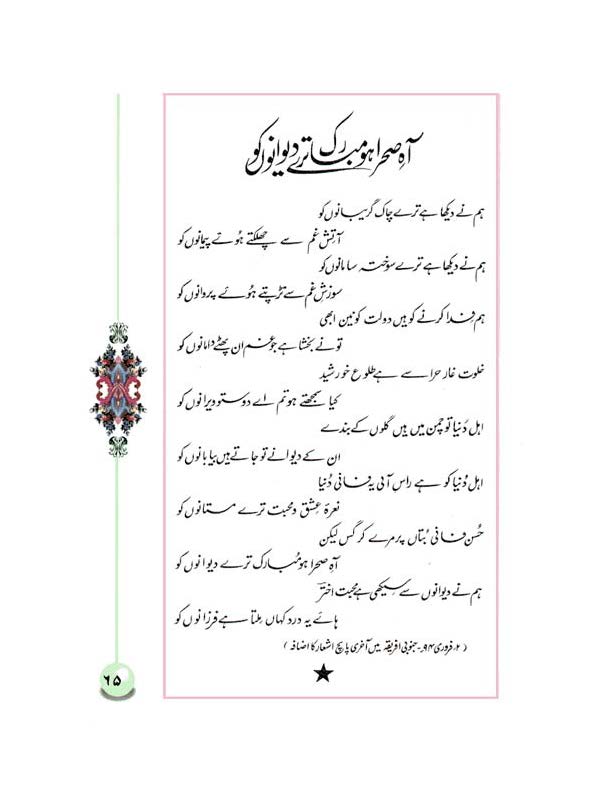 آہِ صحرا ہو مبارک ترے دیوانوں کو
ہم نے دیکھا ہے ترے چاک گریبانوں کو
آتشِ غم سے چھلکتے ہوئے پیمانوں کو
ہم نے دیکھا ہے ترے سوختہ سامانوں کو
سوزشِ غم سے تڑپتے ہوئے پروانوں کو
ہم فدا کرنے کو ہیں دولت کونین ابھی
تو نے بخشا ہے جو غم ان پھٹے دامانوں کو
خلوت غار حرا سے ہے طلوع خورشید
کیا سمجھتے ہو تم اے دوستو ویرانوں کو
اہل دُنیا تو چمن میں ہیں گلوں کے بندے
ان کے دیوانے تو جاتے ہیں بیابانوں کو
اہل دُنیا کو ہے راس آئی یہ فانی دُنیا
نعرۂ عشق و محبت ترے مستانوں کو
حُسن فانی بُتاں پر مرے کرگس لیکن
آہِ صحرا ہو مُبارک ترے دیوانوں کو
ہم نے دیوانوں سے سیکھی ہے محبت اخترؔ
ہائے یہ درد کہاں ملتا ہے فرزانوں کو
(۲۔فروری ۹۴۔جنوبی افریقہ میں آخری پانچ اشعار کا اضافہ)
۶۵